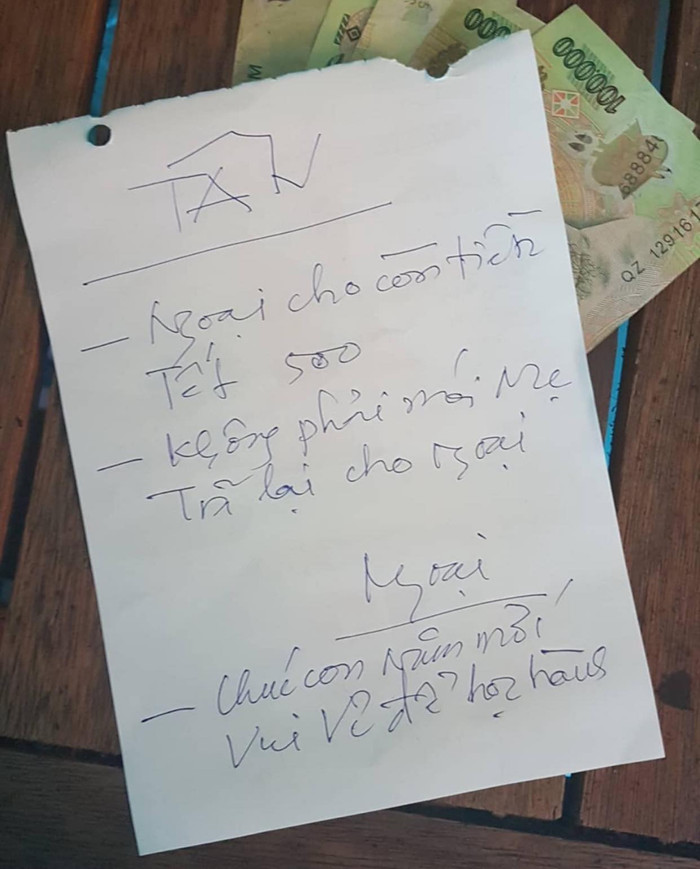 100000
688846
QZ 1291617
TÂN
- Ngoại cho con tiền
Tết 500
- Không phải mói Mẹ
Trã lại cho Ngoại
Ngoại
- Chúc con Năm mới
Vui Vẽ để học hành